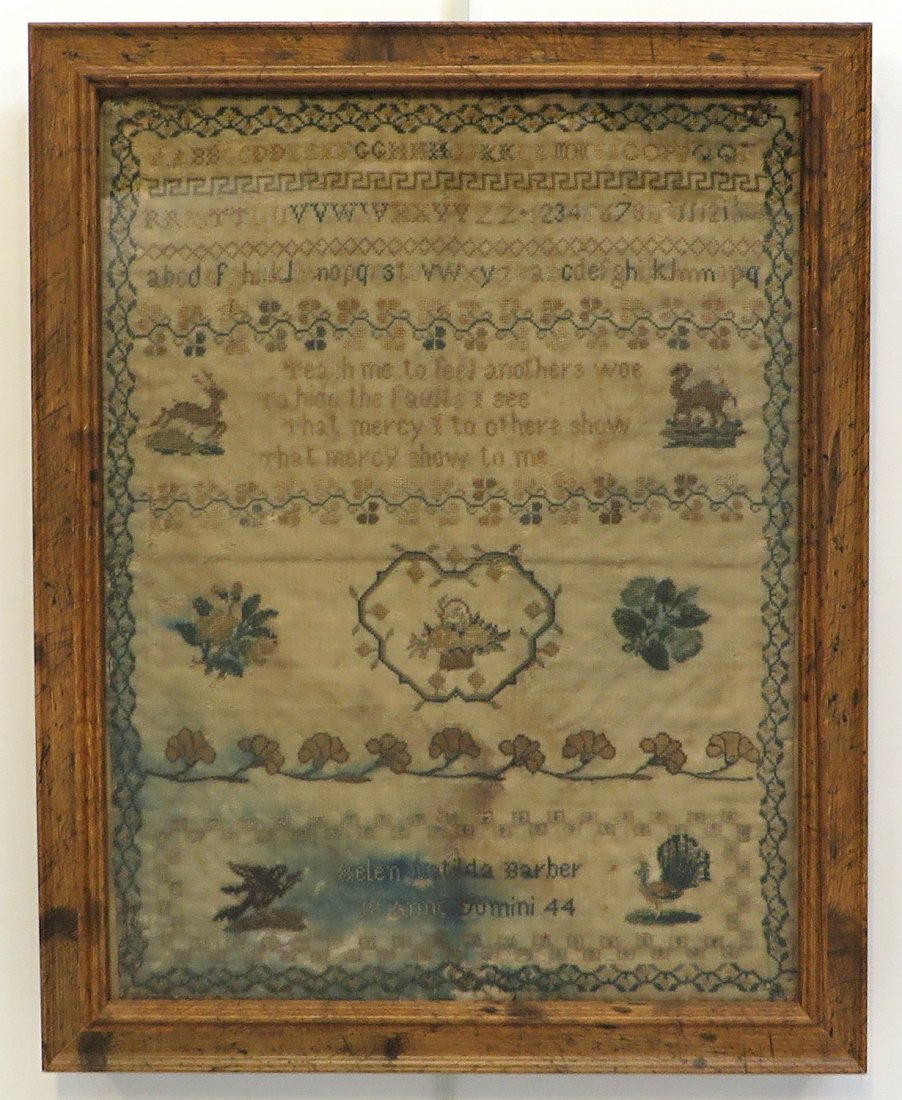 BB DD GGHHH KK QQ
TT UVVWW XYY ZZ 1234 678
abcd f h k l nopq st vw xy a cdefgh klmnopq
Teach me to feel anothers woe
To hide the Faults I see
That mercy I to others show
That mercy show to me
Helen Matilda Barber
18 Anno Domini 44